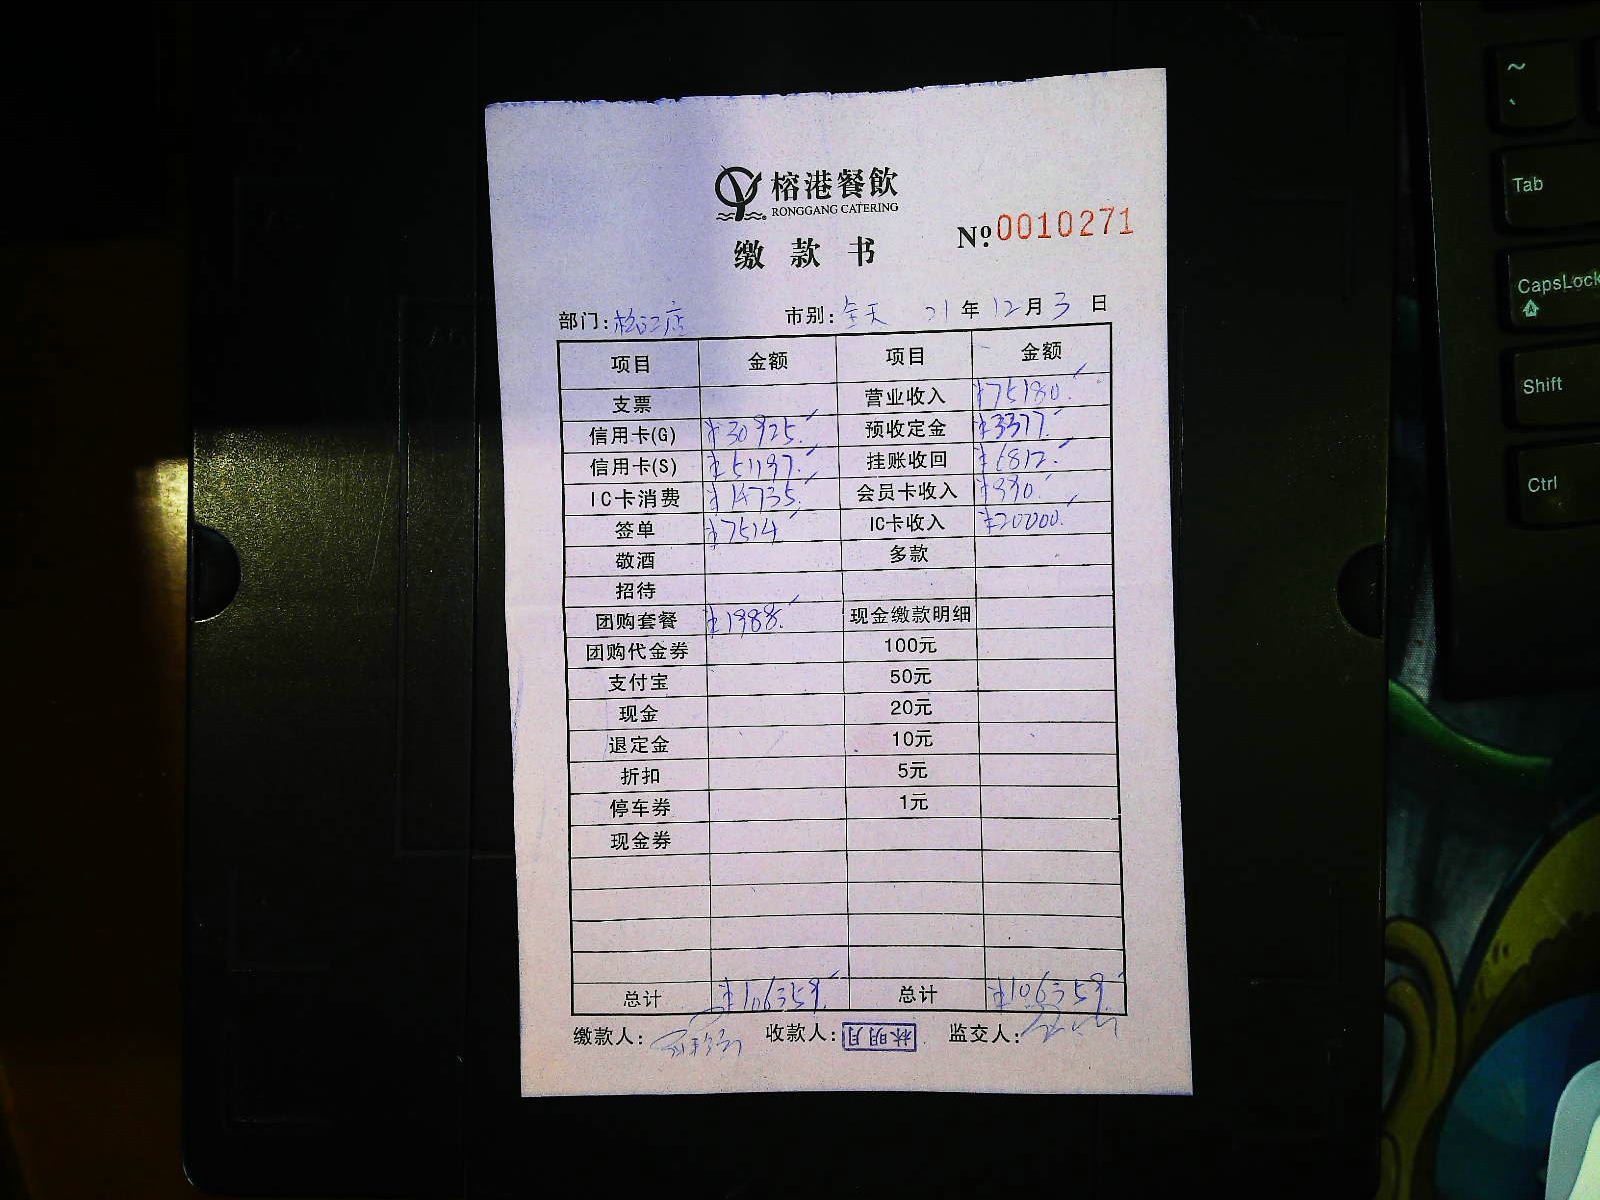 榕港餐飲
RONGGANG CATERING
缴款书
№ 0010271
部门:松江店 市别:全天 21年12月3日
项目 金额 项目 金额
支票 营业收入 ¥75180.
信用卡(G) ¥30925. 预收定金 ¥3377.
信用卡(S) ¥51197. 挂账收回 ¥6812.
IC卡消费 ¥14735. 会员卡收入 ¥990.
签单 ¥7514 IC卡收入 ¥20000.
敬酒 多款
招待
团购套餐 ¥1988. 现金缴款明细
团购代金券 100元
支付宝 50元
现金 20元
退定金 10元
折扣 5元
停车券 1元
现金券
总计 ¥106359. 总计 ¥106359.
缴款人: 收款人:林明月 监交人:
~
`
Tab
CapsLock
Shift
Ctrl